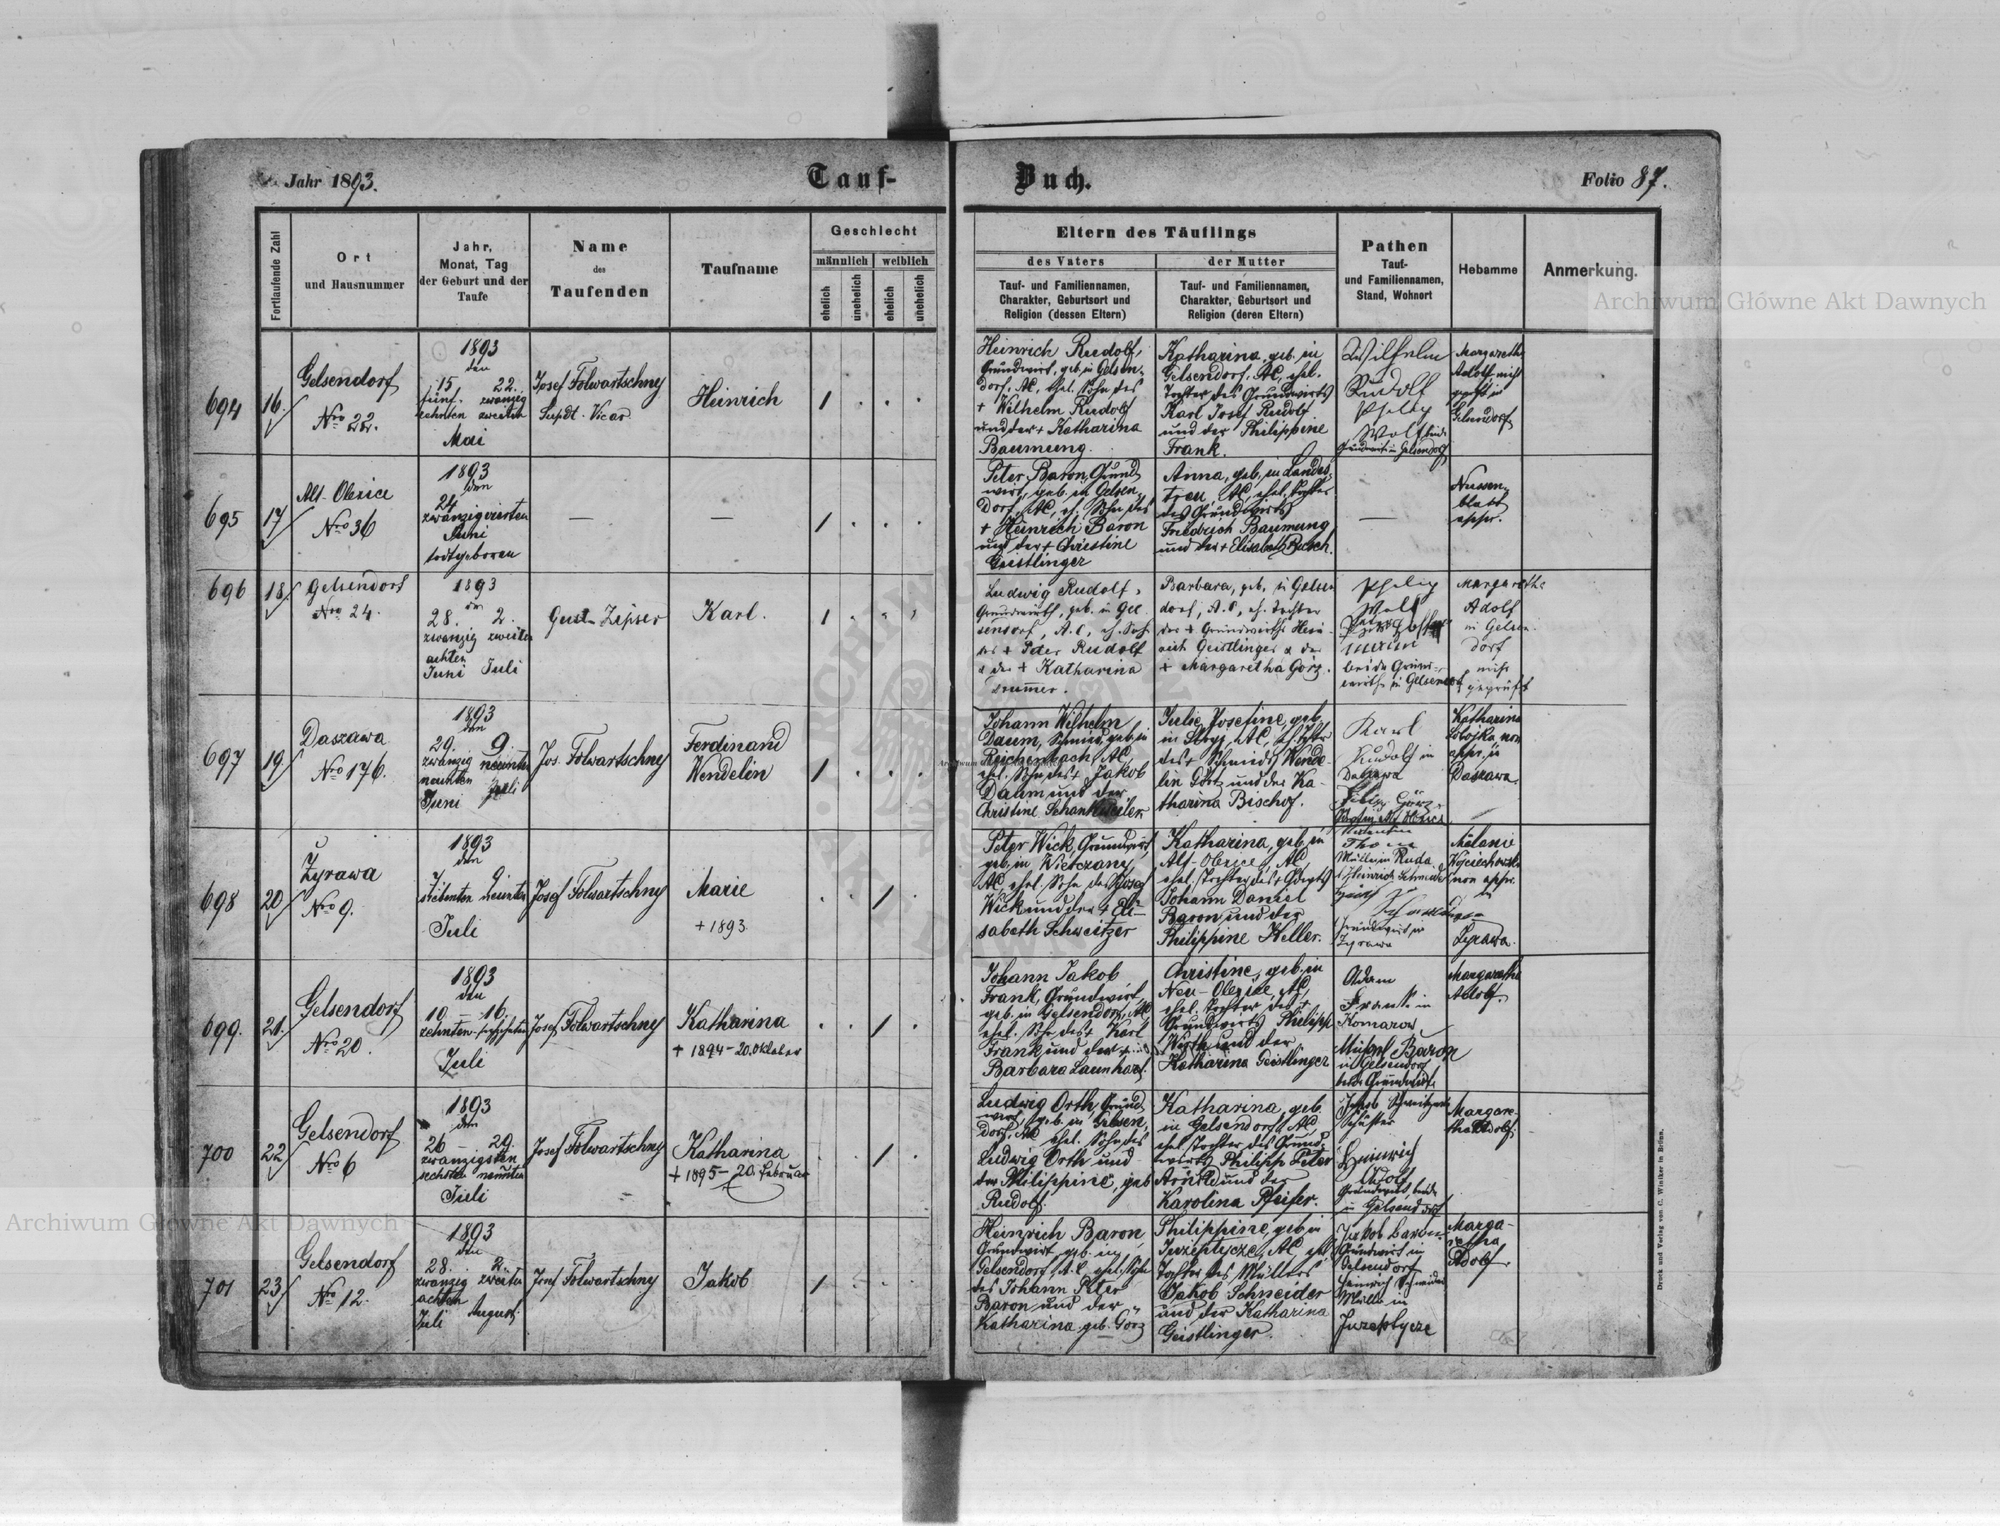 Jahr 1893.
Tauf-
Buch.
Folio 87.
Fortlaufende Zahl
Ort
und Hausnummer
Jahr,
Monat, Tag
der Geburt und der
Taufe
Name
des
Taufenden
Taufname
Geschlecht
männlich
weiblich
ehelich
unehelich
ehelich
unehelich
Eltern des Täuflings
des Vaters
der Mutter
Tauf- und Familiennamen,
Charakter, Geburtsort und
Religion (dessen Eltern)
Tauf- und Familiennamen,
Charakter, Geburtsort und
Religion (deren Eltern)
Pathen
Tauf-
und Familiennamen,
Stand, Wohnort
Hebamme
Anmerkung.
694
16.
Gelsendorf
Nro 22.
1893
den
15. 22.
fünf- zwanzig
zehnten zweiten
Mai
Josef Folwartschny
Supdt. Vicar
Heinrich
Heinrich Rudolf,
Grundwirt, geb. in Gelsen-
dorf, AC, ehel. Sohn des
+ Wilhelm Rudolf
und der + Katharina
Baumung.
Katharina, geb. in
Gelsendorf, AC, ehel.
Tochter des Grundwirts
Karl Josef Rudolf
und der Philippine
Frank.
Wilhelm
Rudolf
Wolf beide
Grundwirte in Gelsendorf
Margaretha
Adolf
Gelsendorf
695
17
Alt-Olexice
Nro 36
1893
den
24
zwanzigvierten
Juni
todtgeboren
—
—
Peter Baron, Grund
wirt, geb. in Gelsen-
dorf, AC, eh. Sohn des
+ Heinrich Baron
und der + Christine
Geistlinger
Anna, geb. in Landes-
treu, AC, ehel. Tochter
des Grundwirts
Friedrich Baumung
und der + Elisabeth Busch.
—
Nussen-
blatt
appr.
696
18
Gelsendorf
Nro 24.
1893
den
28. 2.
zwanzig zweiten
achten
Juni Juli
Gust. Zipser
Karl.
Ludwig Rudolf,
Grundwirth, geb. in Gel
sendorf, A.C, eh. Sohn
des + Peter Rudolf
u der + Katharina
Barbara, geb. in Gelsen
dorf, A.C, eh. Tochter
des + Grundwirths Hein
rich Geistlinger u der
+ Margaretha Görz.
Wolf
beide Grund-
wirthe in Gelsendorf
Margaretha
Adolf
in Gelsen-
dorf
geprüft
697
19.
Daszawa
Nro 176.
1893
den
29. 9
zwanzig neunten
neunten Juli
Juni
Jos. Folwartschny
Ferdinand
Wendelin
Johann Wilhelm
Daum, Schmied, geb. in
Reichenbach, AC,
ehel. Sohn des + Jakob
Daum und der
Christine Schankweiler
Julie Josefine, geb.
in Stryj, AC, eh. Tochter
des + Schmieds Wende-
lin Görz und der Ka-
tharina Bischof.
Karl
Rudolf in
Daszawa
Görz
Katharina
non
appr. in
Daszawa.
698
20
Zyrawa
Nro 9.
1893
den
7 9
siebenten neunten
Juli
Josef Folwartschny
Marie
+ 1893
Peter Wick, Grundwirt,
geb. in Wietczany,
AC, ehel. Sohn des Josef
Wick und der + Eli-
sabeth Schweitzer
Katharina, geb. in
Alt-Olexice, AC,
ehel. Tochter des + Grundwirts
Johann Daniel
Baron und der
Philippine Keller.
Thom
Müller in Ruda
Grundwirt in
Zyrawa
Melanie
Wojciechowska
non appr.
in
Zyrawa.
699.
21.
Gelsendorf
Nro 20.
1893
den
10 — 16.
zehnten-sechszehnten
Juli
Josef Folwartschny
Katharina
+ 1894 - 20. Oktober
Johann Jakob
Frank, Grundwirt,
geb. in Gelsendorf, AC,
ehel. Sohn des + Karl
Frank und der
Barbara Launhart.
Christine, geb. in
Neu-Olexice, AC,
ehel. Tochter des +
Grundwirts Philipp
Wirth und der
Katharina Geistlinger
Adam
Frank in
Komarow
Michael Baron
in Gelsendorf
beide Grundwirte
Margaretha
Adolf.
700
22
Gelsendorf
Nro 6
1893
den
26 — 29.
zwanzigsten
sechsten neunten
Juli
Josef Folwartschny
Katharina
+ 1895 - 20. Februar
Ludwig Orth, Grund
wirt, geb. in Gelsen-
dorf, AC, ehel. Sohn des
Ludwig Orth und
der Philippine, geb
Rudolf.
Katharina, geb.
in Gelsendorf, AC,
ehel. Tochter des Grund-
wirts Philipp Peter
Arndt und der
Karolina Pfeifer.
Jakob Schweitzer
Schuster
Heinrich
Adolf
Grundwirt, beide
in Gelsendorf
Margare-
tha Adolf.
701
23
Gelsendorf
Nro 12.
1893
den
28. 2.
zwanzig zweiten
achten
Juli August
Josef Folwartschny
Jakob
Heinrich Baron,
Grundwirt, geb. in
Gelsendorf, A.C. ehel. Sohn
des Johann Peter
Baron und der
Katharina, geb. Görz
Philippine, geb. in
Juzeptycze, AC, ehel
Tochter des Müllers
Jakob Schneider
und der Katharina
Geistlinger.
Jakob Baron
Grundwirt in
Gelsendorf
Heinrich Schneider
Müller in
Juzeptycze
Marga-
retha
Adolf.
Druck und Verlag von C. Winiker in Brünn.
Archiwum Główne Akt Dawnych
Archiwum Główne Akt Dawnych